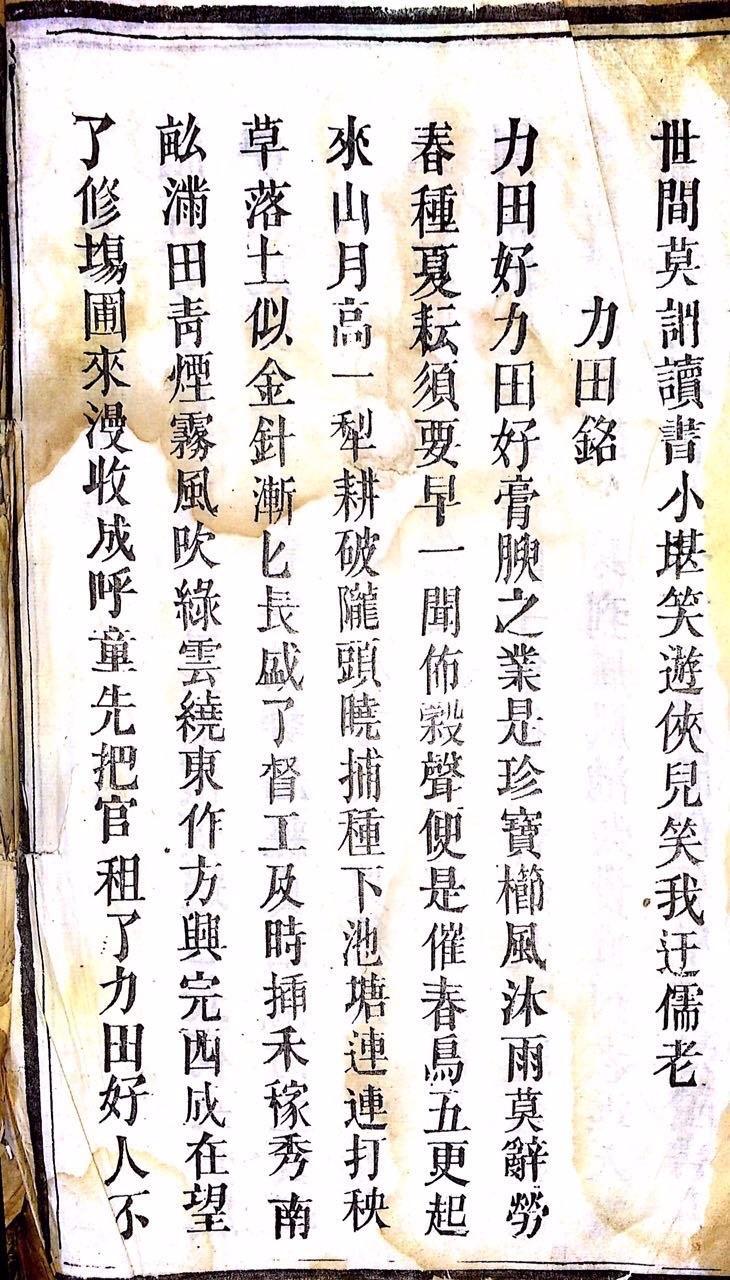 世間莫訓讀書小堪笑遊俠兒笑我迂儒老
力田銘
力田好力田好膏腴之業是珍寶櫛風沐雨莫辭勞
春種夏耘須要早一聞佈穀聲便是催春鳥五更起
來山月高一犁耕破隴頭曉捕種下池塘連連打秧
草落土似金針漸匕長威了督工及時揷禾稼秀南
畝滿田靑煙霧風吹綠雲繞東作方興完西成在望
了修塲圃來漫收成呼童先把官租了力田好人不